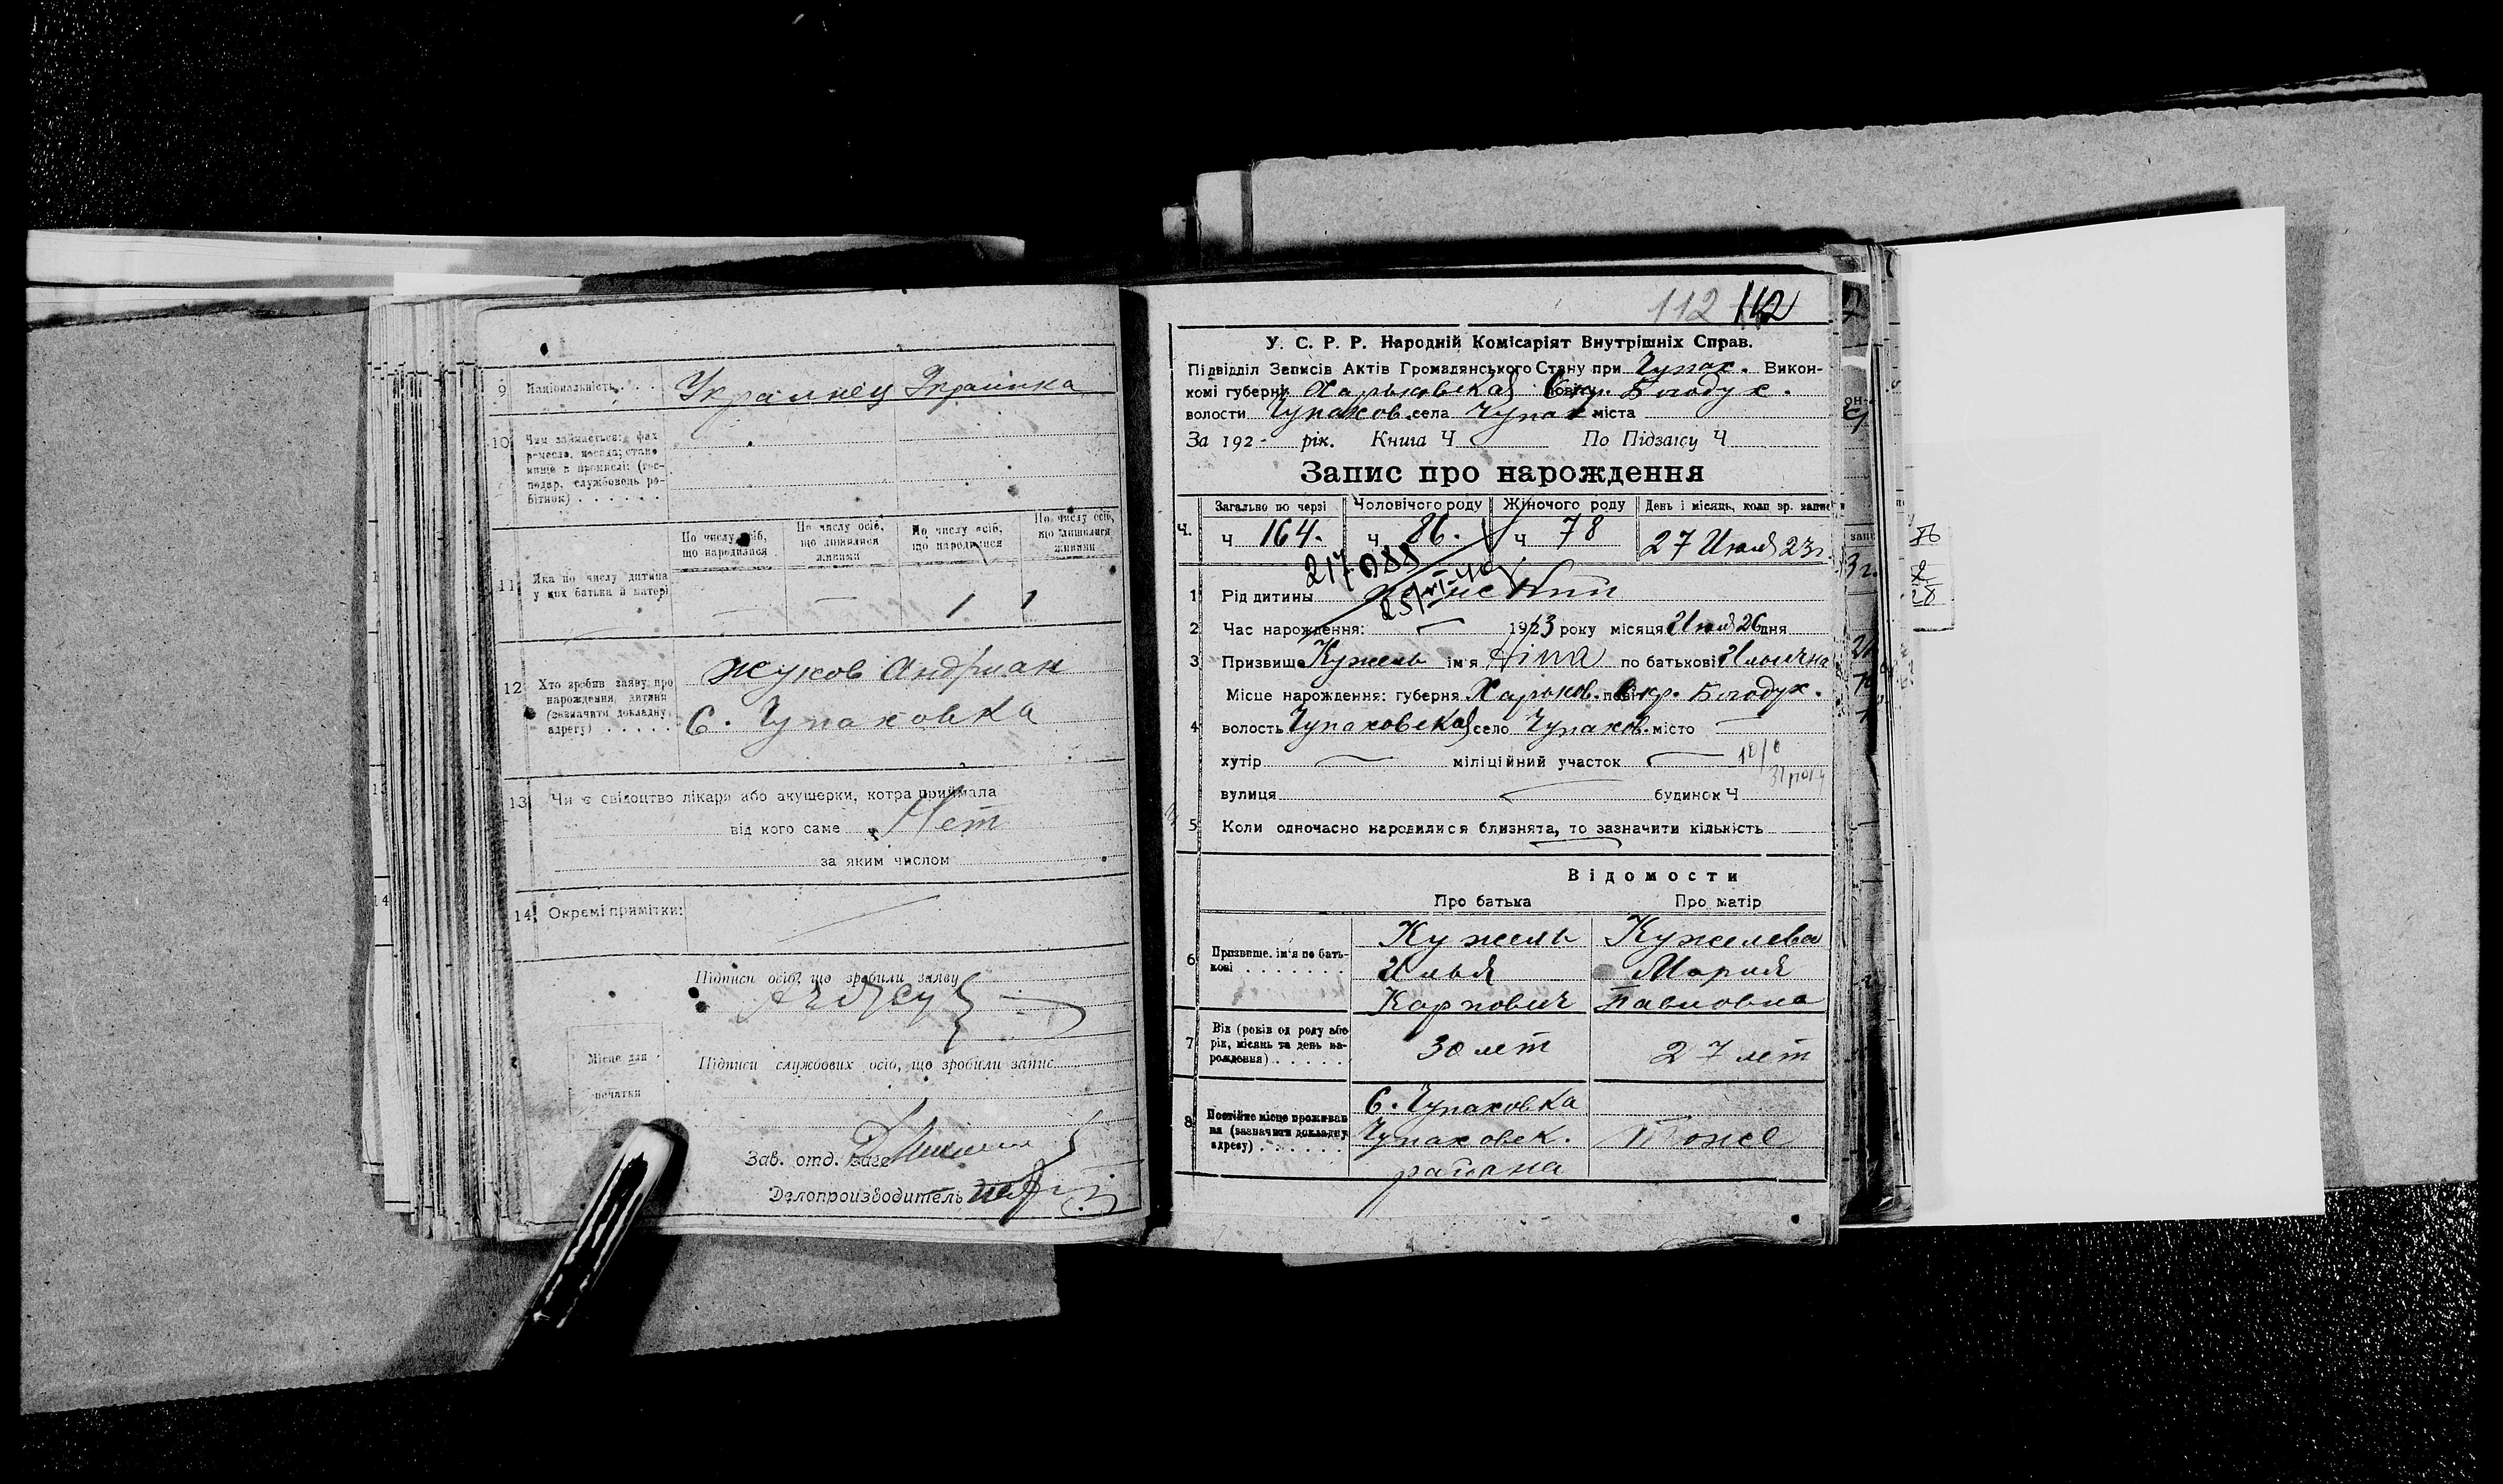 9 Національность. . . . Украинец Украинка
10 Чим займається: фах
ремесло, посада; стано
вище в промислі: (гос-
подар, службовець ро-
бітник) . . . . . .
11 Яка по числу дитина
у цих батька й матері
По числу осіб,
що народилися
По числу осіб,
що лишилися
живими
По числу осіб,
що народилися
По числу осіб,
що лишилися
живими
1 1
12 Хто зробив заяву про
нарождення дитини
(зазначити докладну
адресу) . . . . .
Жуков Андриан
С. Чупаховка
13 Чи є свідоцтво лікаря або акушерки, котра приймала
від кого саме Нет
за яким числом
14 Окремі примітки:
Підписи осіб, що зробили заяву
Місце для
печатки
Підписи службових осіб, що зробили запис
Зав. отд. загс
Делопроизводитель
112 112
У. С. Р. Р. Народній Комісаріят Внутрішніх Справ.
Підвідділ Записів Актів Громадянського Стану при Чупах. Викон-
комі губерні Харьковская Окр. Богодух.
волости Чупахов. села Чупах міста
За 192- рік. Книга Ч По Підзагсу Ч
Запис про народження
Загально по черзі Чоловічого роду Жіночого роду День і місяць, коли зр. запис
Ч. ч 164. ч 86. ч 78 27 Июля 23г.
217088
1 Рід дитины женский
2 Час народження: 1923 року місяця Июля 26 дня
3 Призвище Кужель ім'я Ніна по батькові Ильична
Місце народження: губерня Харьков. Окр. Богодух.
4 волость Чупаховская село Чупахов. місто
хутір міліційний участок
вулиця будинок Ч
5 Коли одночасно народилися близнята, то зазначити кількість
Відомости
Про батька Про матір
6 Призвище, ім'я по бать-
кові . . . . . . .
Кужель Кужелева
Илья Мария
Карпович Павловна
7 Вік (років од роду або
рік, місяць та день на-
рождення) . . . . .
30 лет 27 лет
8 Постійне місце проживан
ня (зазначити докладну
адресу) . . . . . .
С. Чупаховка
Чупаховск. Тоже
района